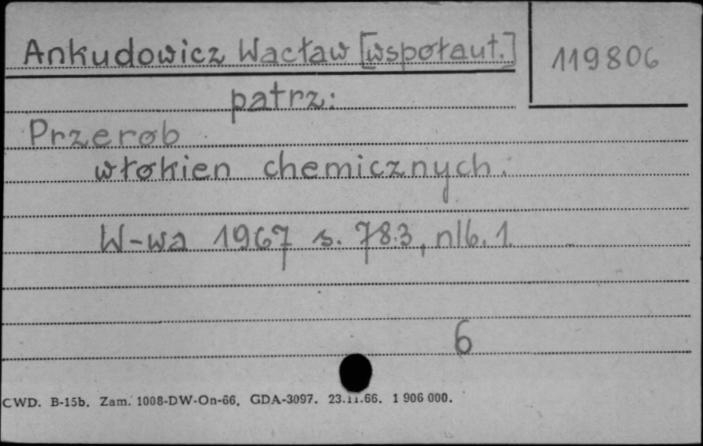 Ankudowicz Wacław [współaut.]
119806
patrz:
Przerób
włókien chemicznych.
W-wa 1967 s. 783, nlb. 1
6
CWD. B-15b. Zam. 1008-DW-On-66. GDA-3097. 23.11.66. 1 906 000.